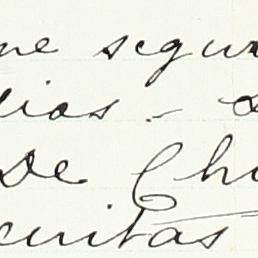 ne segu
dias - 
De Ch
cuitas